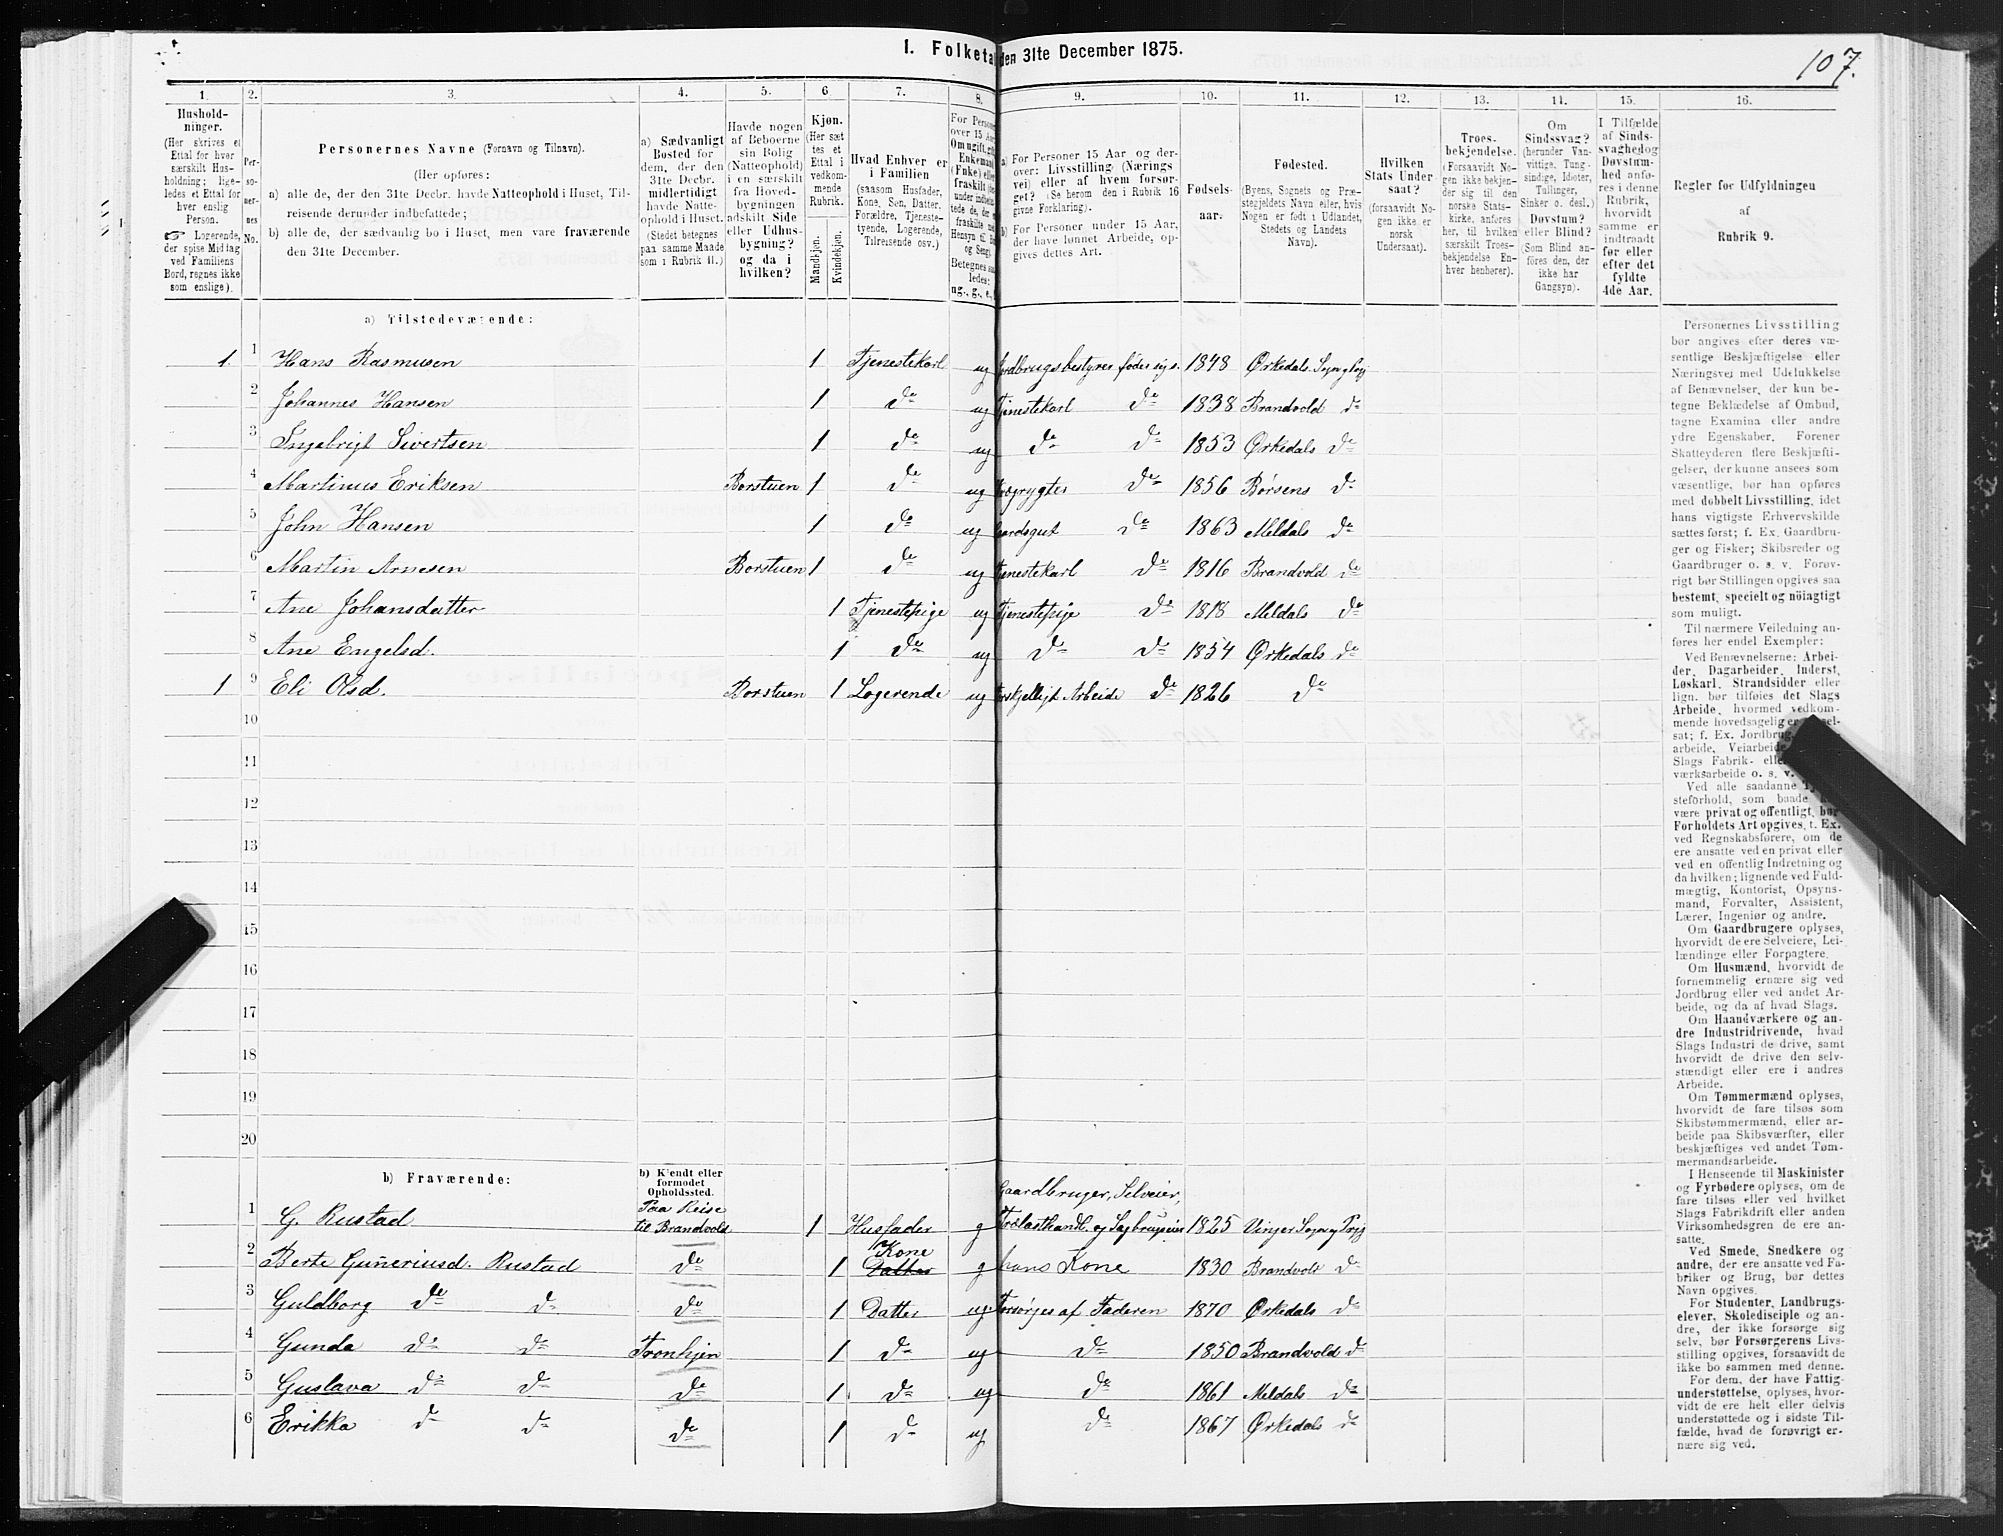 I. Folketal den 31te December 1875.
107.
1. 2. 3. 4. 5. 6. 7. 8. 9. 10. 11. 12. 13. 14. 15. 16.
Hushold-
ninger.
(Her skrives et
Ettal for hver
særskilt Hus-
holdning; lige-
ledes et Ettal for
hver enslig
Person.
Logerende,
der spise Middag
ved Familiens
Bord, regnes ikke
som enslige).
Per-
so-
ner-
nes
No.
Personernes Navne (Fornavn og Tilnavn).
(Her opføres:
a) alle de, der den 31te Decbr. havde Natteophold i Huset, Til-
reisende derunder indbefattede;
b) alle de, der sædvanlig bo i Huset, men vare fraværende
den 31te December.
a) Sædvanligt
Bosted for
dem, der den
31te Decbr.
midlertidigt
havde Natte-
ophold i Huset.
(Stedet betegnes
paa samme Maade
som i Rubrik 11.)
Havde nogen
af Beboerne
sin Bolig
(Natteophold)
i en særskilt
fra Hoved-
bygningen
adskilt Side
eller Udhus-
bygning?
og da i
hvilken?
Kjøn.
(Her sæt
tes et
Ettal i
vedkom-
mende
Rubrik.
Mandkjøn.
Kvindekjøn.
Hvad Enhver er
i Familien
(saasom Husfader,
Kone, Søn, Datter,
Forældre, Tjeneste-
tyende, Logerende,
Tilreisende osv.)
For Personer
over 15 Aar:
Om ugift, gift,
Enkemand
(Enke) eller
fraskilt
Betegnes saa-
ledes:
ug., g., e.,
a) For Personer 15 Aar og der-
over: Livsstilling (Nærings
vei) eller af hvem forsør-
get? (Se herom den i Rubrik 16
givne Forklaring).
b) For Personer under 15 Aar,
der have lønnet Arbeide, op-
gives dettes Art.
Fødsels-
aar.
Fødested.
(Byens, Sognets og Præ-
stegjeldets Navn eller, hvis
Nogen er født i Udlandet,
Stedets og Landets
Navn).
Hvilken
Stats Under
saat?
(forsaavidt No-
gen ikke er
norsk
Undersaat).
Troes-
bekjendelse.
(Forsaavidt No-
gen ikke bekjen-
der sig til den
norske Stats-
kirke, anføres
her, til hvilken
særskilt Troes-
bekjendelse En-
hver henhører).
Om
Sindssvag?
(herunder Van-
vittige, Tung-
sindige, Idioter,
Tullinger,
Sinker o. desl.)
Døvstum?
eller Blind?
(Som Blind an-
føres den, der
ikke har
Gangsyn).
I Tilfælde
af Sinds-
svaghed og
Døvstum-
hed anfø-
res i denne
Rubrik,
hvorvidt
samme er
indtraadt
før eller
efter det
fyldte
4de Aar.
Regler for Udfyldningen
af
Rubrik 9.
a) Tilstedeværende:
1. 1 Hans Rasmusen 1 Tjenestekarl ug Jordbrugsbestyrer føder sig s. 1848 Ørkedals Sogn og Prgj
2 Johannes Hansen 1 do ug Tjenestekarl do 1838 Brandvold do
3 Ingebrigt Sivertsen 1 do ug do do 1853 Ørkedals do
4 Martinus Eriksen Borstuen 1 do ug Kreaturrygter do 1856 Børsens do
5 John Hansen 1 do ug Gaardsgut do 1863 Meldals do
6 Martin Arnesen Borstuen 1 do ug Tjenestekarl do 1816 Brandvold do
7 Ane Johansdatter 1 Tjenestepige ug Tjenestepige do 1818 Meldals do
8 Ane Engelsd. 1 do ug do do 1854 Ørkedals do
1 9 Eli Olsd. Borstuen 1 Logerende ug Forskjelligt Arbeide do 1826 do
10
11
12
13
14
15
16
17
18
19
20
b) Fraværende:
b) Kjendt eller
formodet
Opholdssted.
Paa Reise Gaardbruger, Selveier,
1 G. Rustad til Brandvold 1 Husfader g Trælasthandl. og Sagbrugseier 1825 Vinger Sogn og Prgj
Kone
2 Berte Guneriusd. Rustad do 1 Datter g hans Kone 1830 Brandvolt do
3 Guldborg do do do 1 Datter ug Forsørges af Faderen 1870 Ørkedals do
4 Gunda do do Tronhjen 1 do ug do 1850 Brandvold do
5 Gustava do do do 1 do ug do 1861 Meldals do
6 Erikka do do do 1 do ug do 1867 Ørkedals do
Personernes Livsstilling
bør angives efter deres væ-
sentlige Beskjæftigelse eller
Næringsvei med Udelukkelse
af Benævnelser, der kun be-
tegne Beklædelse af Ombud,
tagne Examina eller andre
ydre Egenskaber. Forener
Skatteyderen flere Beskjæfti-
gelser, der kunne ansees som
væsentlige, bør han opføres
med dobbelt Livsstilling, idet
hans vigtigste Erhvervskilde
sættes først; f. Ex. Gaardbru-
ger og Fisker; Skibsreder og
Gaardbruger o. s. v. Forøv-
rigt bør Stillingen opgives saa
bestemt, specielt og nöiagtigt
som muligt.
Til nærmere Veiledning an-
føres her endel Exempler:
Ved Benævnelserne: Arbei-
der, Dagarbeider, Inderst,
Løskarl, Strandsidder eller
lign. bør tilføies det Slags
Arbeide, hvormed vedkom-
mende hovedsagelig er
sat; f. Ex. Jordbrug
arbeide, Veiarbeide
Slags Fabrik- eller
værksarbeide o. s. v.
Ved alle saadanne
steforhold, som baade
være privat og offentligt, bør
Forholdets Art opgives, t. Ex.
ved Regnskabsførere, om de
ere ansatte ved en privat eller
ved en offentlig Indretning og
da hvilken; lignende ved Fuld-
mægtig, Kontorist, Opsyns-
mand, Forvalter, Assistent,
Lærer, Ingeniør og andre.
Om Gaardbrugere oplyses,
hvorvidt de ere Selveiere, Lei-
lændinge eller Forpagtere.
Om Husmænd, hvorvidt de
fornemmelig ernære sig ved
Jordbrug eller ved andet Ar-
beide, og da af hvad Slags.
Om Haandværkere og an-
dre Industridrivende, hvad
Slags Industri de drive, samt
hvorvidt de drive den selv-
stændigt eller ere i andres
Arbeide.
Om Tømmermænd oplyses,
hvorvidt de fare tilsøs som
Skibstømmermænd, eller ar-
beide paa Skibsværfter, eller
beskjæftiges ved andet Tøm-
mermandsarbeide.
I Henseende til Maskinister
og Fyrbødere oplyses, om de
fare tilsøs eller ved hvilket
Slags Fabrikdrift eller anden
Virksomhedsgren de ere an-
satte.
Ved Smede, Snedkere og
andre, der ere ansatte ved Fa-
briker og Brug, bør dettes
Navn opgives.
For Studenter, Landbrugs-
elever, Skoledisciple og an-
dre, der ikke forsørge sig
selv, bør Forsørgerens Livs-
stilling opgives, forsaavidt de
ikke bo sammen med denne.
For dem, der have Fattig-
understøttelse, oplyses, hvor-
vidt de ere helt eller delvis
understøttede og i sidste Til-
fælde, hvad de forøvrigt er-
nære sig ved.